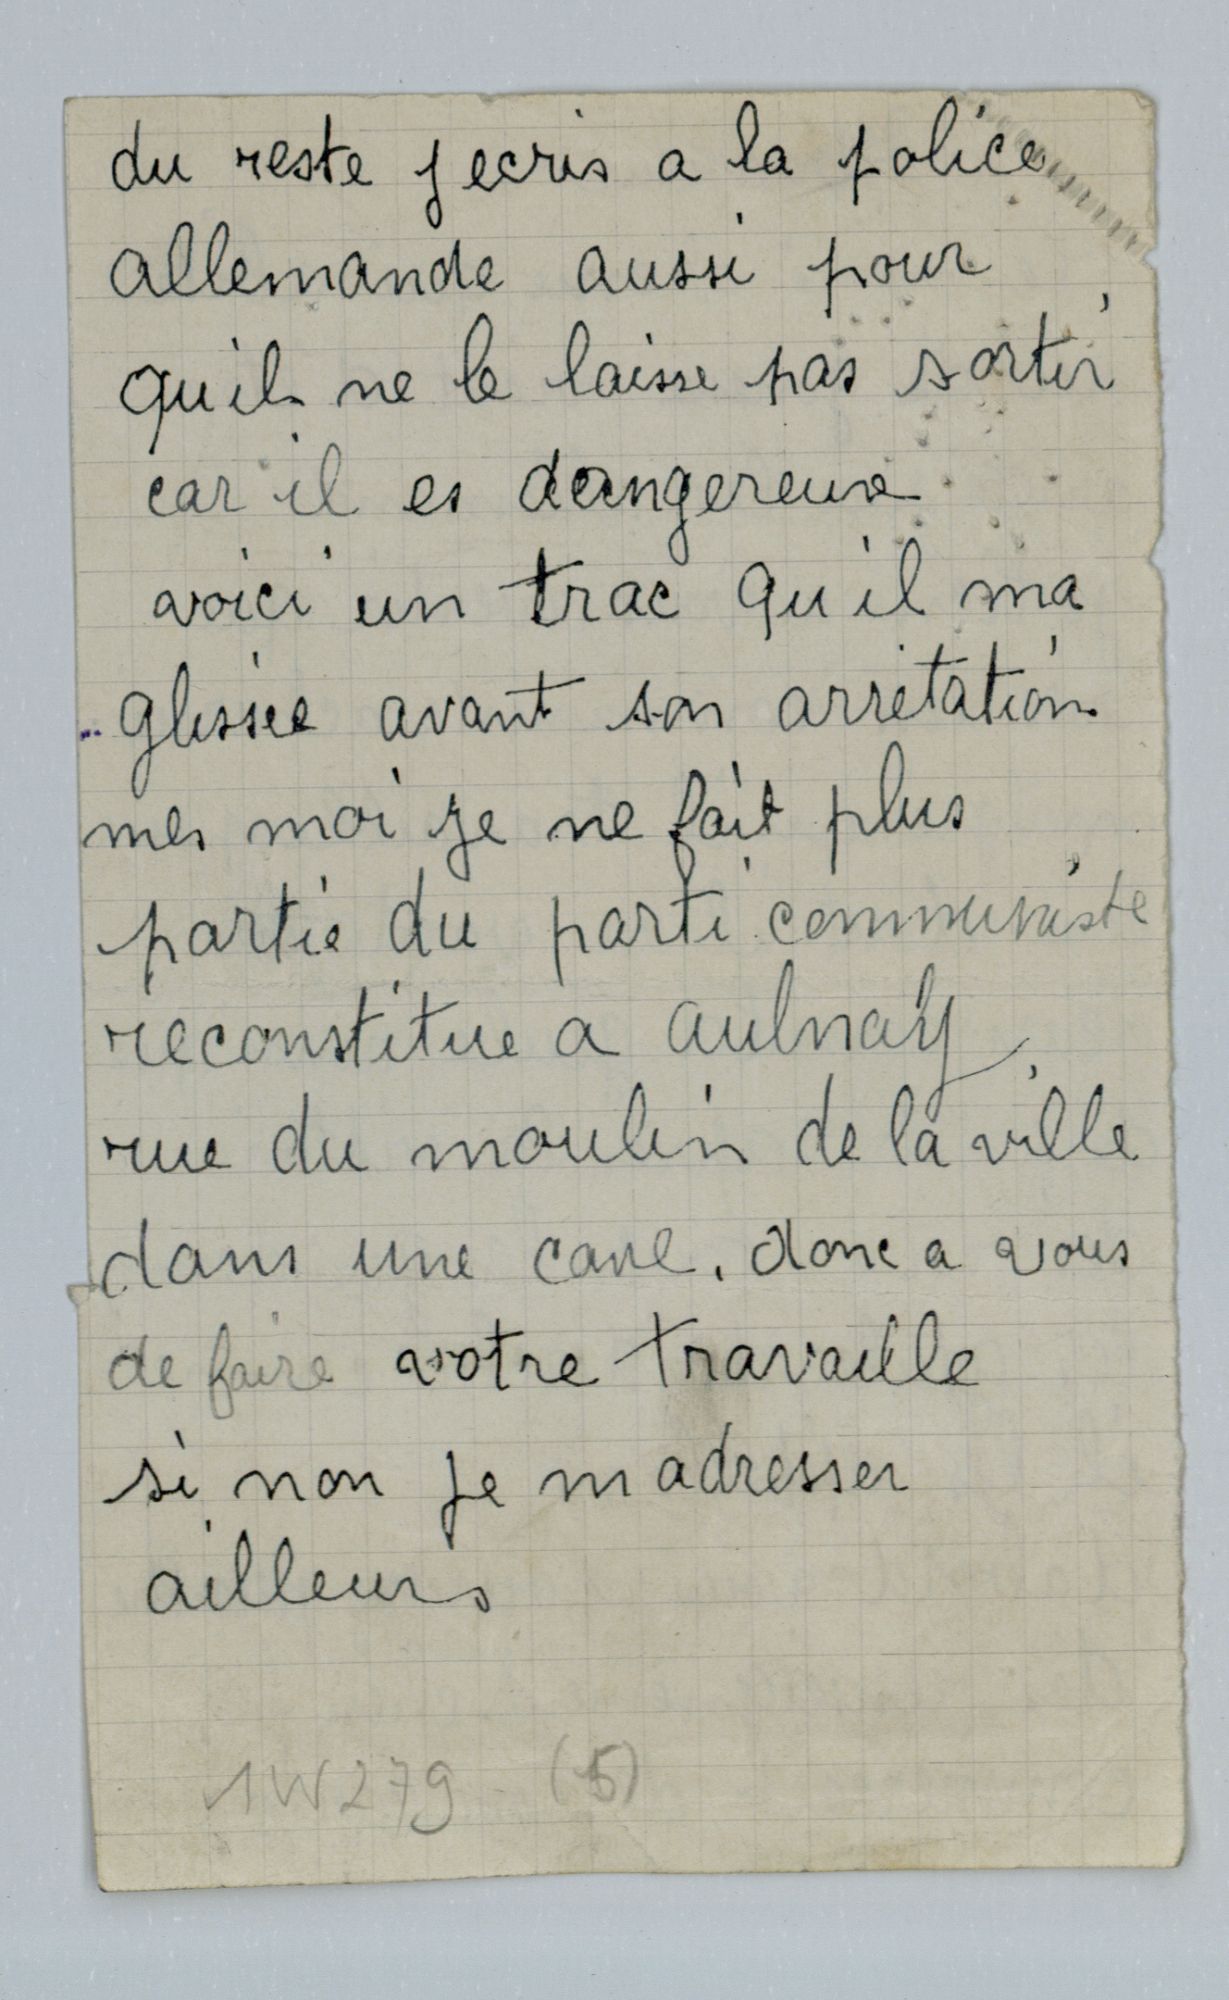 du reste j ecris a la police
allemande aussi pour
qu il ne le laisse pas sortir
car il es dangereuse
voici un trac qu il ma
glissée avant son arrétation
mes moi je ne fait plus
partie du parti communiste
reconstitue a aulnay,
rue du moulin de la ville
dans une cave. donc a vous
de faire votre travaille
si non je m adresser
ailleurs
1W279 (5)